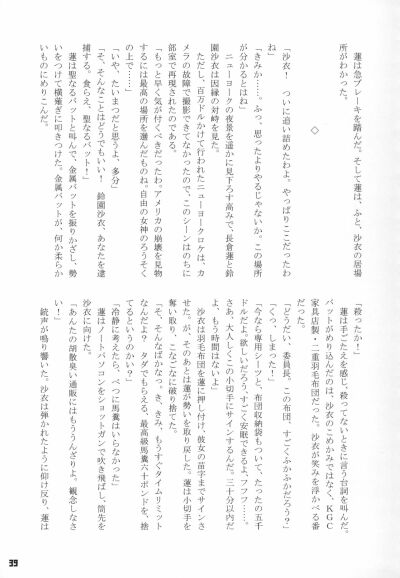 蓮は急ブレーキを踏んだ。そして蓮は、ふと、沙衣の居場
所がわかった。
◇
「沙衣！　ついに追い詰めたわよ。やっぱりここだったわ
ね」
「きみか……ふっ。思ったよりやるじゃないか。この場所
が分かるとはね」
ニューヨークの夜景を遥かに見下ろす高みで、長倉蓮と鈴
園沙衣は因縁の対峙を見た。
ただし、百万ドルかけて行われたニューヨークロケは、カ
メラの故障で撮影できてなかったので、このシーンはのちに
部室で再現されたものである。
「もっと早く気が付くべきだったわ。アメリカの崩壊を見物
するには最高の場所を選んだものね。自由の女神のろうそく
の上で……」
「いや、たいまつだと思うよ、多分」
「そ、そんなことはどうでもいい！　鈴園沙衣、あなたを逮
捕する。食らえ、聖なるバット！」
蓮は聖なるバットと叫んで、金属バットを振りかざし、勢
いをつけて横薙ぎに叩きつけた。金属バットが、何か柔らか
いものにめりこんだ。
「殺ったか！」
蓮は手ごたえを感じ、殺ってないときに言う台詞を叫んだ。
バットがめり込んだのは、沙衣のこめかみではなく、ＫＧＣ
家具店製・二重羽毛布団だった。沙衣が笑みを浮かべる番
だった。
「どうだい、委員長、この布団、すごくふかふかだろう？」
「くっ、しまった！」
「今なら専用シーツと、布団収納袋もついて、たったの五千
ドルだよ。欲しいだろう。すごく安眠できるよ、フフフ……。
さあ、大人しくこの小切手にサインするんだ。三十分以内だ
よ、もう時間はないよ」
沙衣は羽毛布団を蓮に押し付け、彼女の苗字までサインさ
せた。が、そのあとは蓮が勢いを取り戻した。蓮は小切手を
奪い取り、こなごなに破り捨てた。
「そ、そんなばかなっ。き、きみ、もうすぐタイムリミット
なんだよ？　タダでもらえる、最高級馬糞六十ポンドを、捨
てるというのかい？」
「冷静に考えたら、べつに馬糞はいらなかった」
蓮はノートパソコンをショットガンで吹き飛ばし、筒先を
沙衣に向けた。
「あんたの胡散臭い通販にはもううんざりよ。観念しなさ
い！」
銃声が鳴り響いた。沙衣は弾かれたように仰け反り、蓮は
39